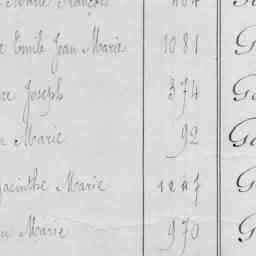 Marie François
Emile Jean Marie 1081 G
Joseph 374 G
Marie 92 G
Hyacinthe Marie G
Marie 970 G